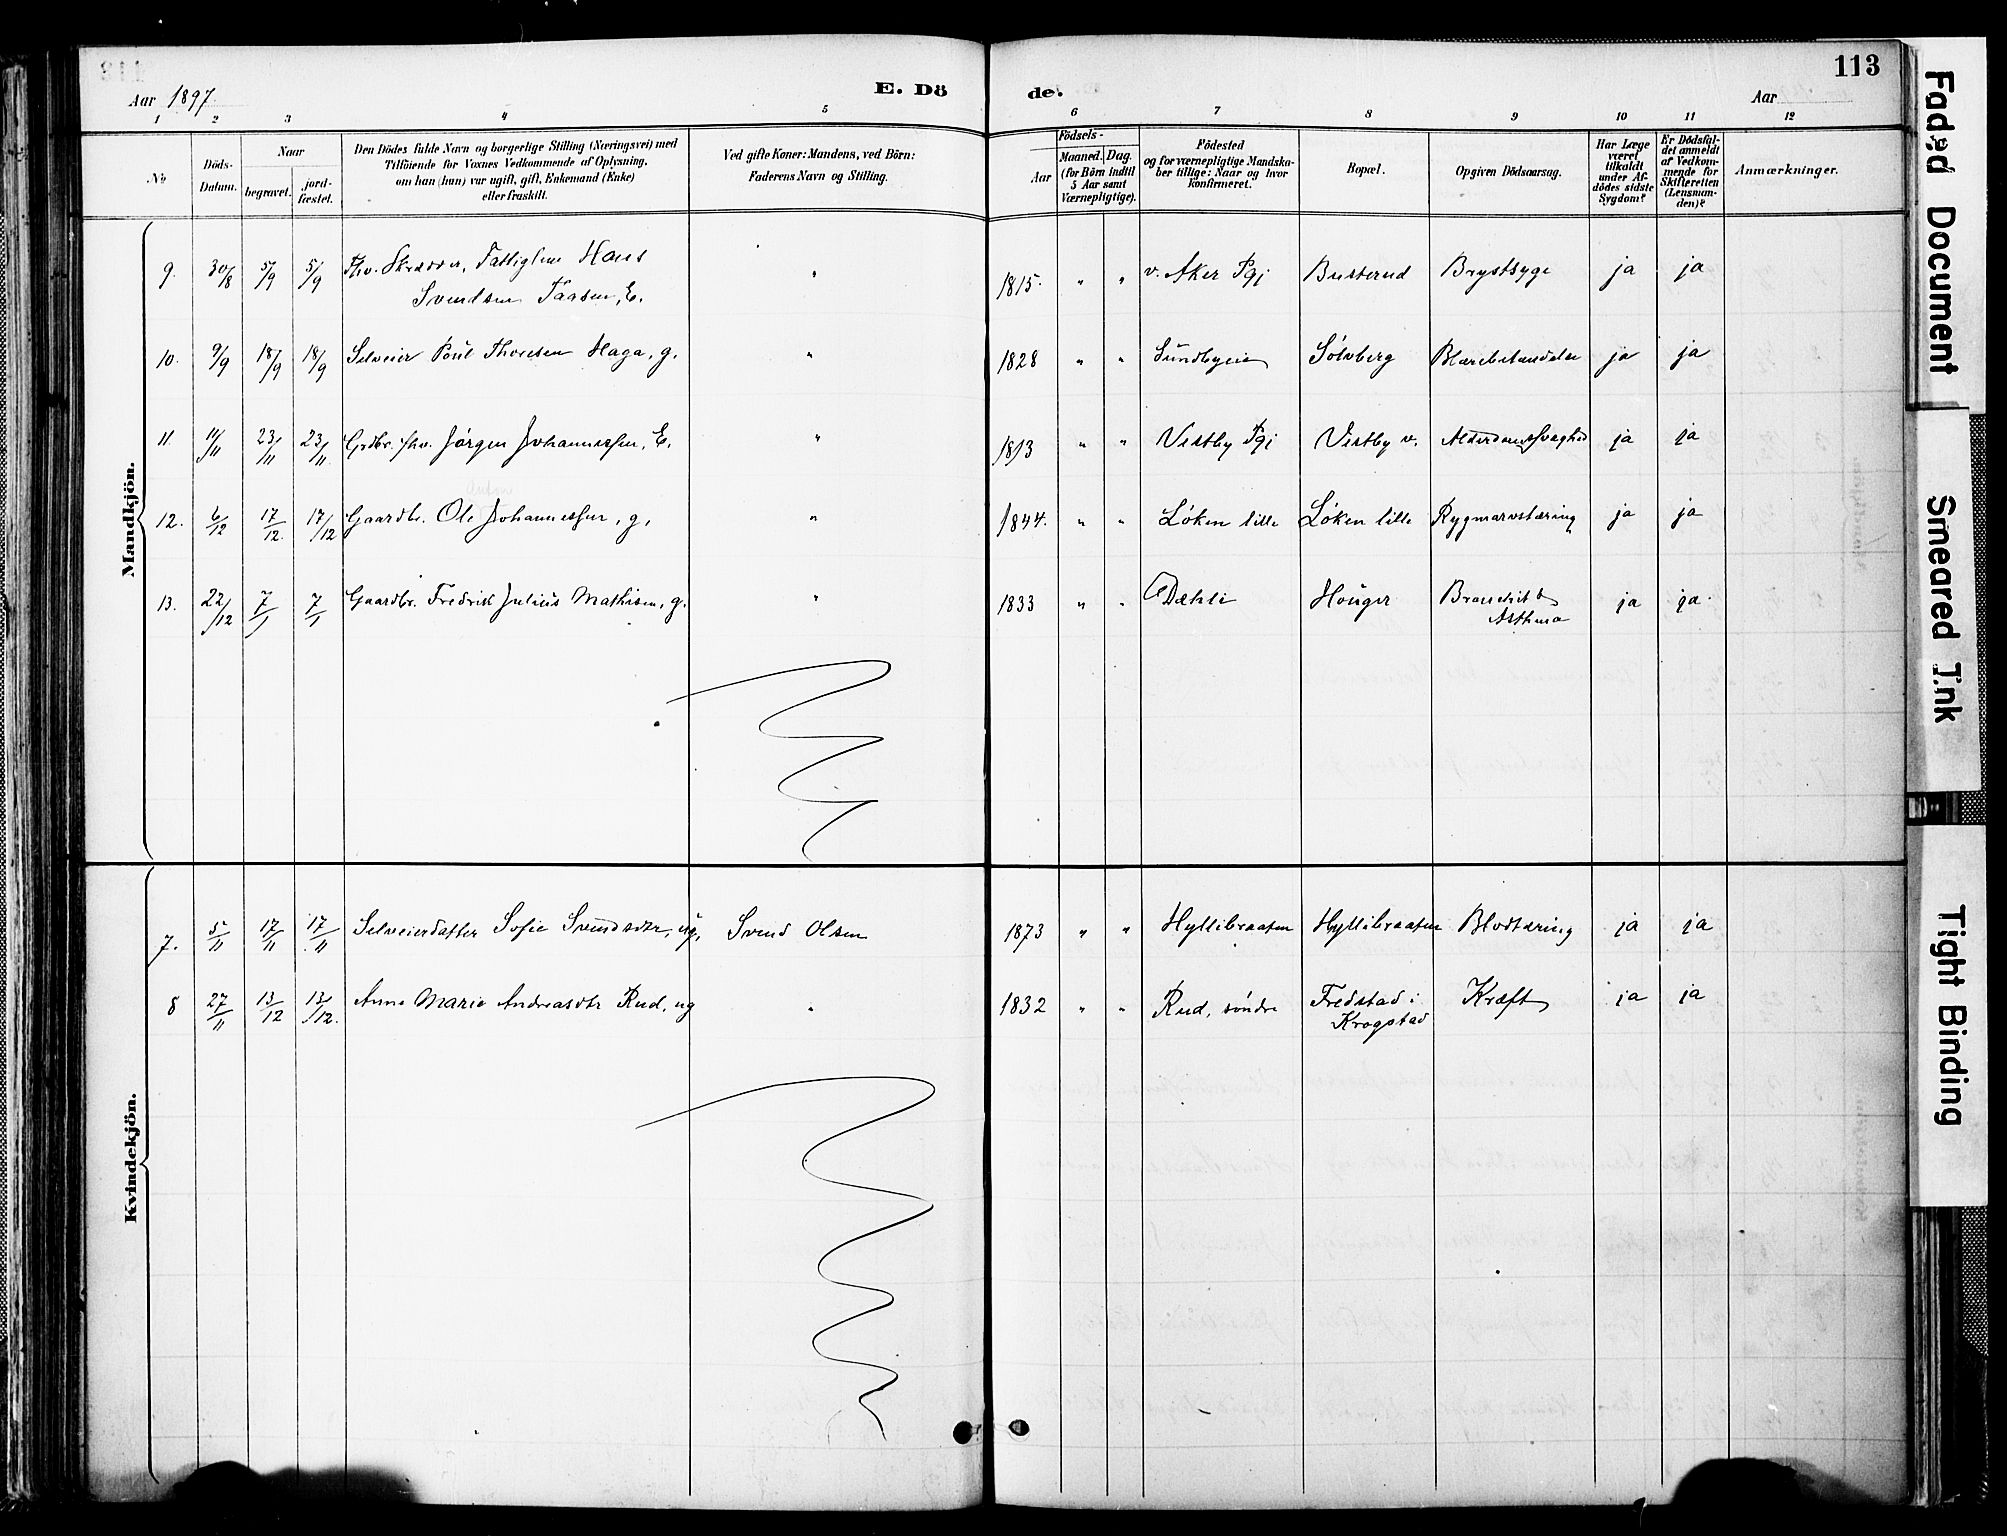 113
Aar 1897.
E. Dö
de.
Aar
1 2 3 4 5 6 7 8 9 10 11 12
No
Döds-Datum.
Naar
begravet.
jord-fæstet.
Den Dödes fulde Navn og borgerlige Stilling (Næringsvei) med
Tilföiende for Voxnes Vedkommende af Oplysning,
om han (hun) var ugift, gift, Enkemand (Enke)
eller fraskilt.
Ved gifte Koner: Mandens, ved Börn:
Faderens Navn og Stilling.
Födsels-
Aar
Maaned. Dag.
(for Börn indtil
5 Aar samt
Værnepligtige).
Födested
og for værnepligtige Mandska-
ber tillige: Naar og hvor
konfirmeret.
Bopæl.
Opgiven Dödsaarsag.
Har Læge
været
tilkaldt
under Af-
dödes sidste
Sygdom?
Er Dödsfal-
det anmeldt
af Vedkom-
mende for
Skifteretten
(Lensman-
den)?
Anmærkninger.
Mandkjön.
9. 30/8 5/9 5/9 Fhv. Skrædder, Fattiglem Hans
Svendsen Taasen, E. " 1815. " " v. Aker Pgj Busterud Brystsyge ja ja
10. 9/9 18/9 18/9 Selveier Poul Thoresen Haga, g. " 1828 " " Sundbyeie Solberg Blærebetændelse ja ja
11. 11/11 23/11 23/11 Grdbr. fhv. Jörgen Johannessen, E. " 1813 " " Vestby Pgj Vestby v. Alderdomssvaghed ja ja
Anton
12. 6/12 17/12 17/12 Gaardbr. Ole Johannessen, g. " 1844. " " Löken lille Löken lille Rygmarvstæring ja ja
13. 22/12 7/1 7/1 Gaardbr. Fredrik Julius Mathisen, g. " 1833 " " Dæhli Houger Bronchit &
Asthma ja ja.
Kvindekjön.
7. 5/11 17/11 17/11 Selveierdatter Sofie Svendsdtr, ug, Svend Olsen 1873 " " Hyllibraaten Hyllibraaten Blodtæring ja ja
8 27/11 13/12 13/12. Anne Marie Andreasdtr Rud, ug " 1832 " " Rud, söndre Fredstad i
Krogstad Kræft ja ja
Faded Document
Smeared Ink
Tight Binding